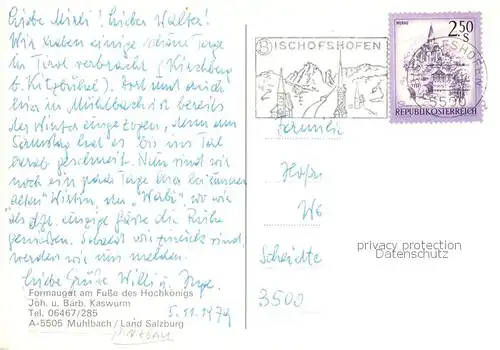 Liebe Mitzi! Lieber Walter!
Wir haben einige schöne Tage
in Tirol verbracht (Kirchberg
b. Kitzbühel). Dort und auch
hier in Mühlbach ist bereits
der Winter eingezogen, denn am
Samstag hat es bis ins Tal
herab geschneit. Nun sind wir
noch ein paar Tage hier bei unserer
"alten" Wirtin, der "Wabi", wo wir
als einzige Gäste die Ruhe
genießen. Sobald wir zurück sind,
werden wir uns melden.
Liebe Grüße Willi u. Inge.
5.11.1979
Formaugut am Fuße des Hochkönigs
Joh. u. Barb. Kaswurm
Tel. 06467/285
A-5505 Mühlbach/Land Salzburg
PINZGAU
BISCHOFSHOFEN
MURAU
2.50
S
5500
REPUBLIK ÖSTERREICH
Familie
We
3500
privacy protection
Datenschutz